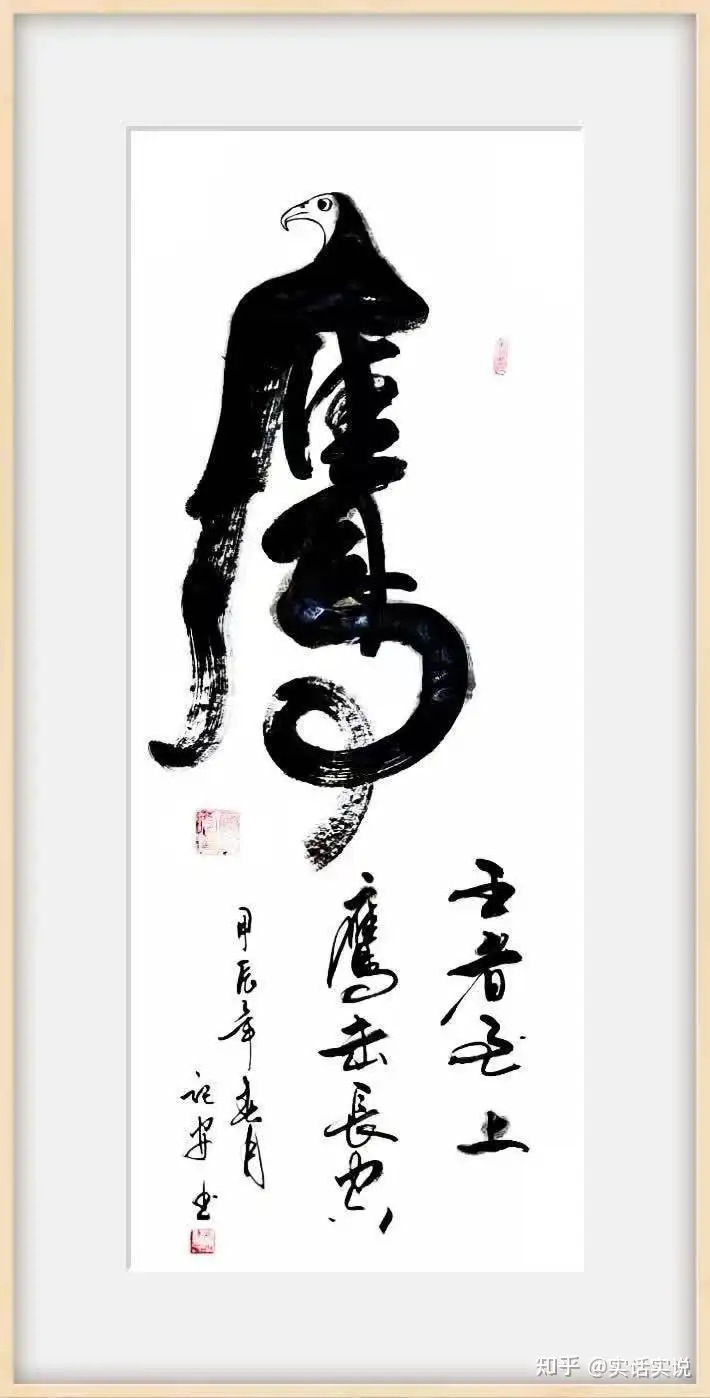 鷹
王者至上
鷹击長空
甲辰年春月
书
知乎 @实话实说